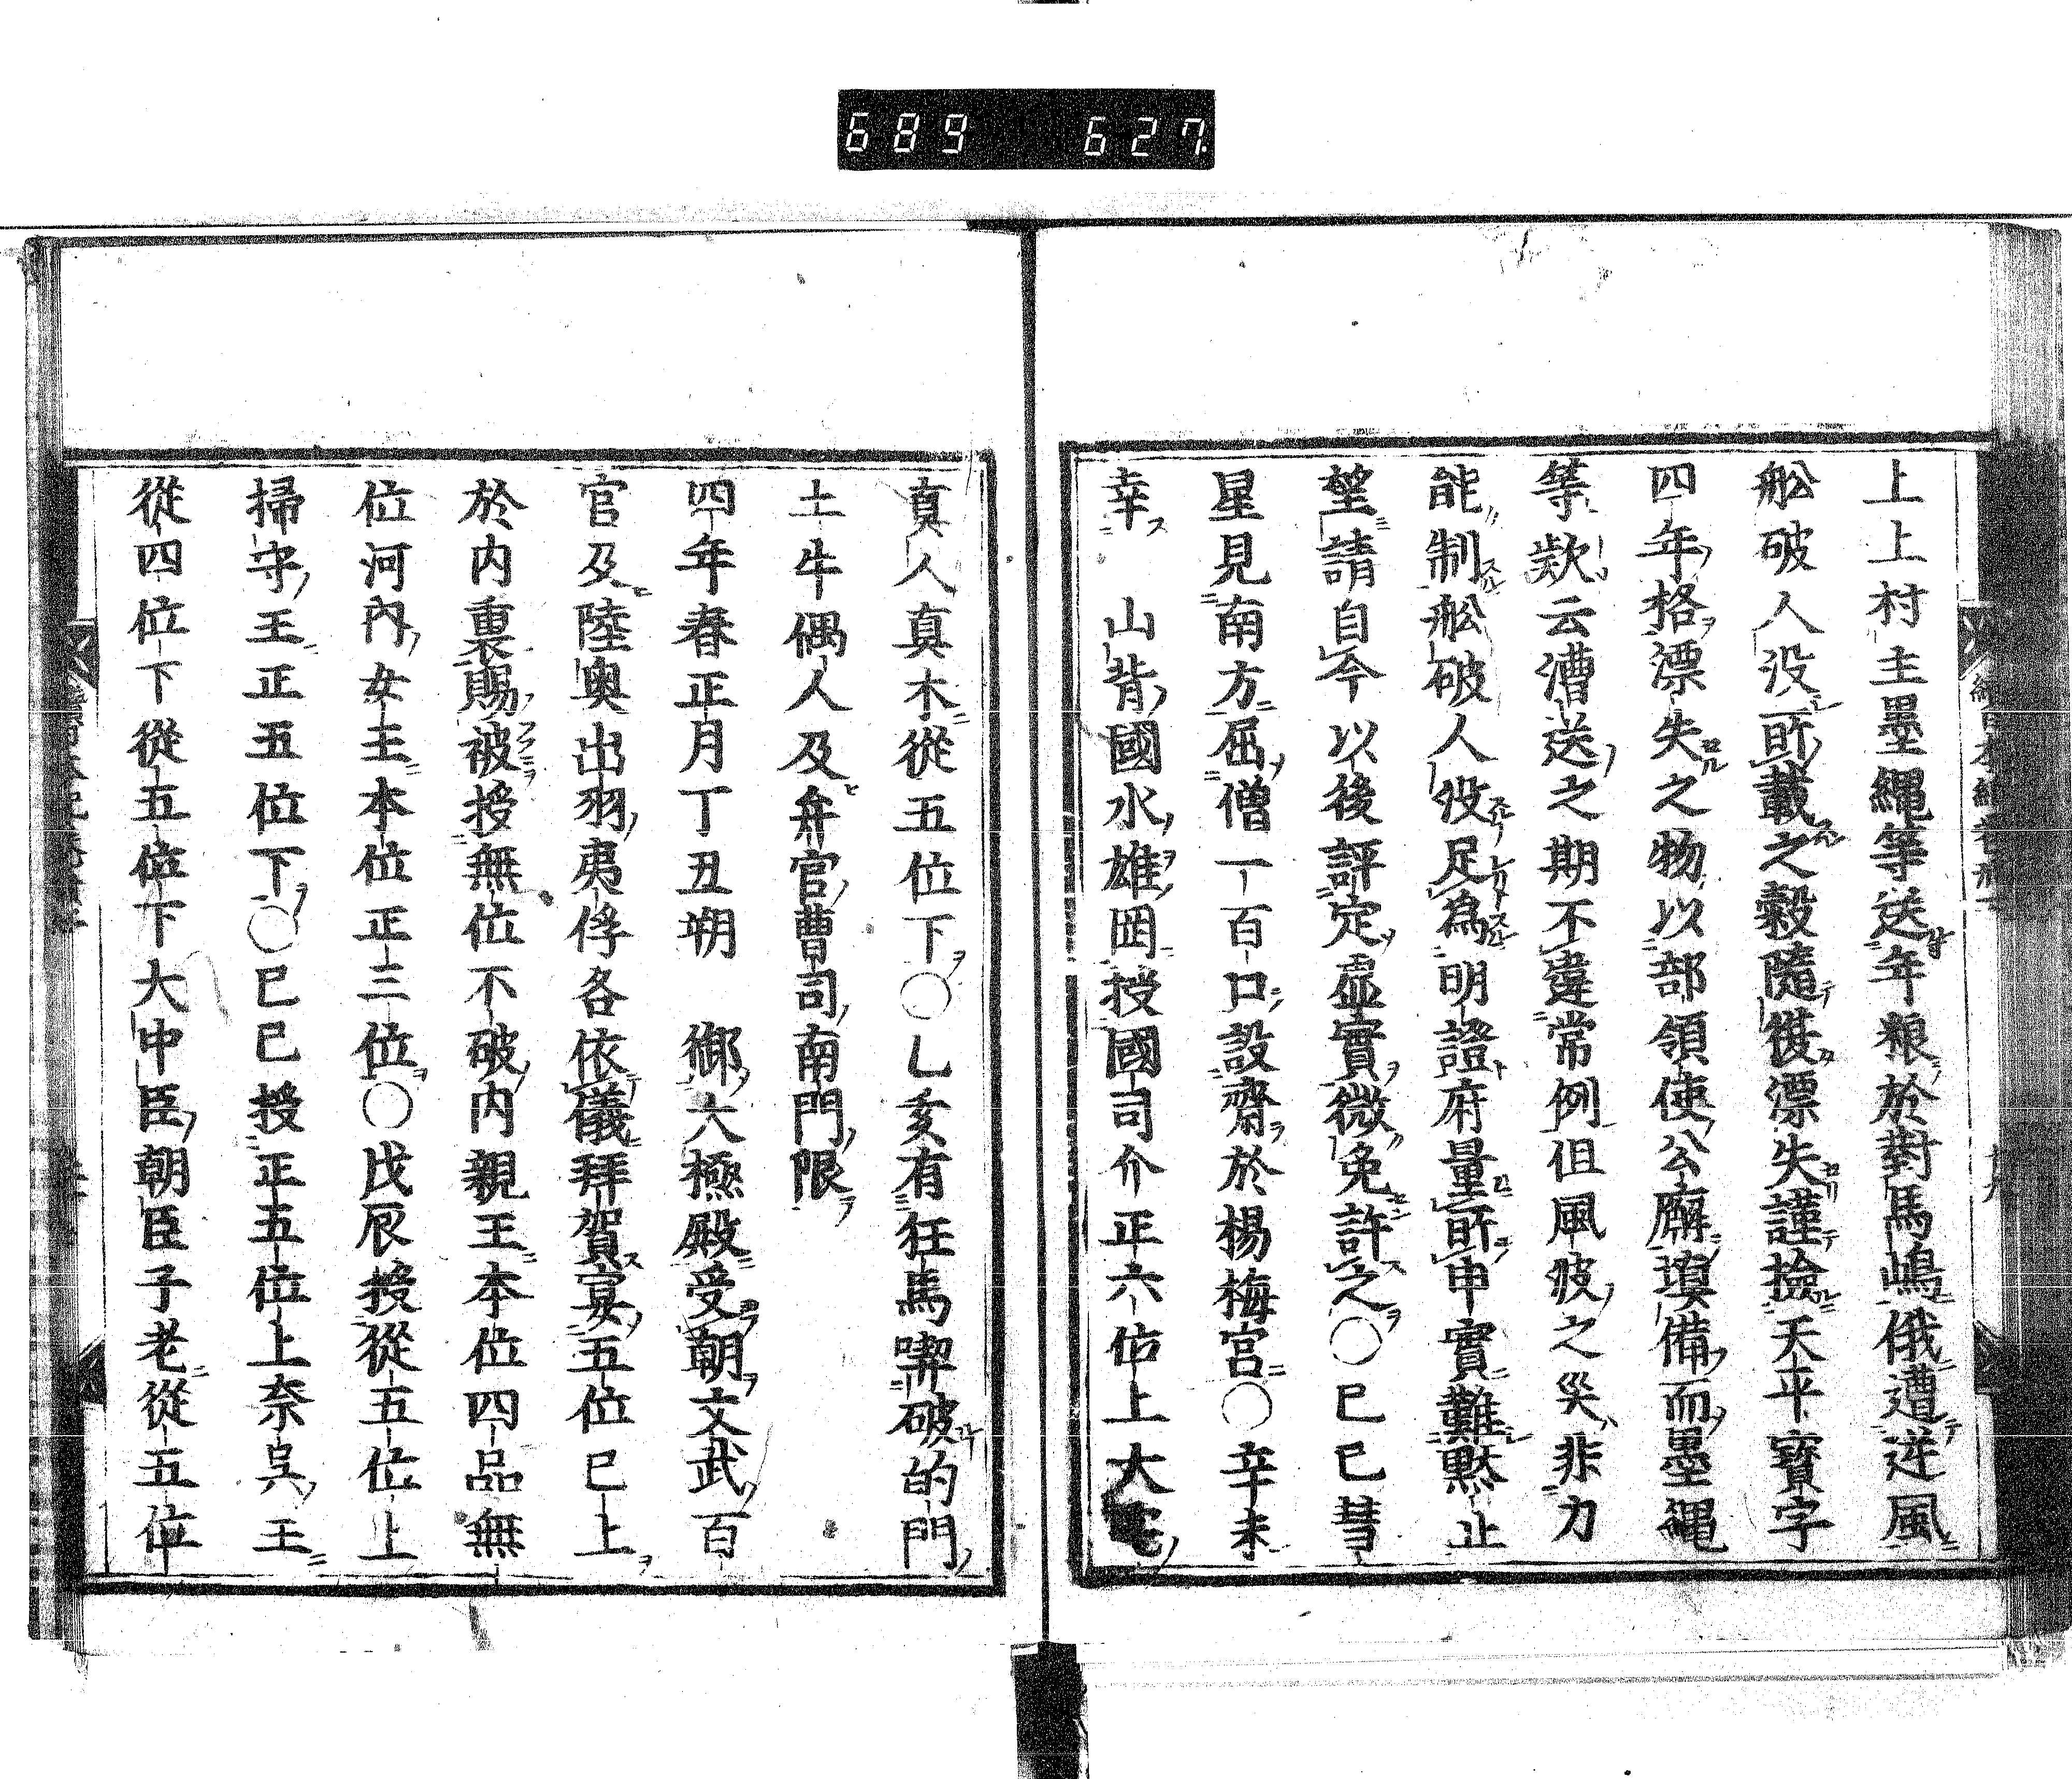 689 627
上上村主墨繩等送年粮於對馬嶋俄遭逆風
舩破人没所載之穀隨復漂失謹撿天平寳字
四年格漂失之物以部領使公廨塡備而墨繩
等欵云漕送之期不違常例但風波之災非力
能制舩破人没足為明證府量所申實難黙止
望請自今以後評定虛實徴免許之〇巳巳彗
星見南方屈僧一百口設齋於楊梅宮〇辛未
幸 山背國水雄罡授國司介正六佑上大宅
真人真木從五位下〇乙亥有狂馬喫破的門
土牛偶人及弁官曹司南門限
四年春正月丁丑朔 御大極殿受朝文武百
官及陸奥出羽夷俘各依儀拜賀宴五位已上
於内裏賜被授無位不破内親王本位四品無
位河內女王本位正三位〇戊辰授從五位上
掃守王正五位下〇巳巳授正五位上奈貝王
從四位下從五位下大中臣朝臣子老從五位